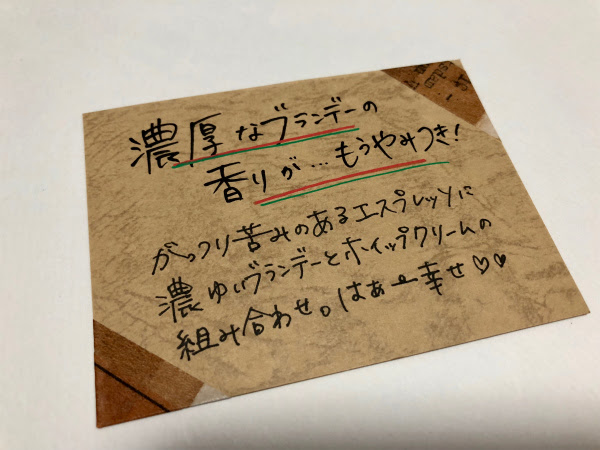 濃厚なブランデーの
香りが…もうやみつき!
がっつり苦みのあるエスプレッソに
濃ゆいブランデーとホイップクリームの
組み合わせ。はぁー幸せ♡♡